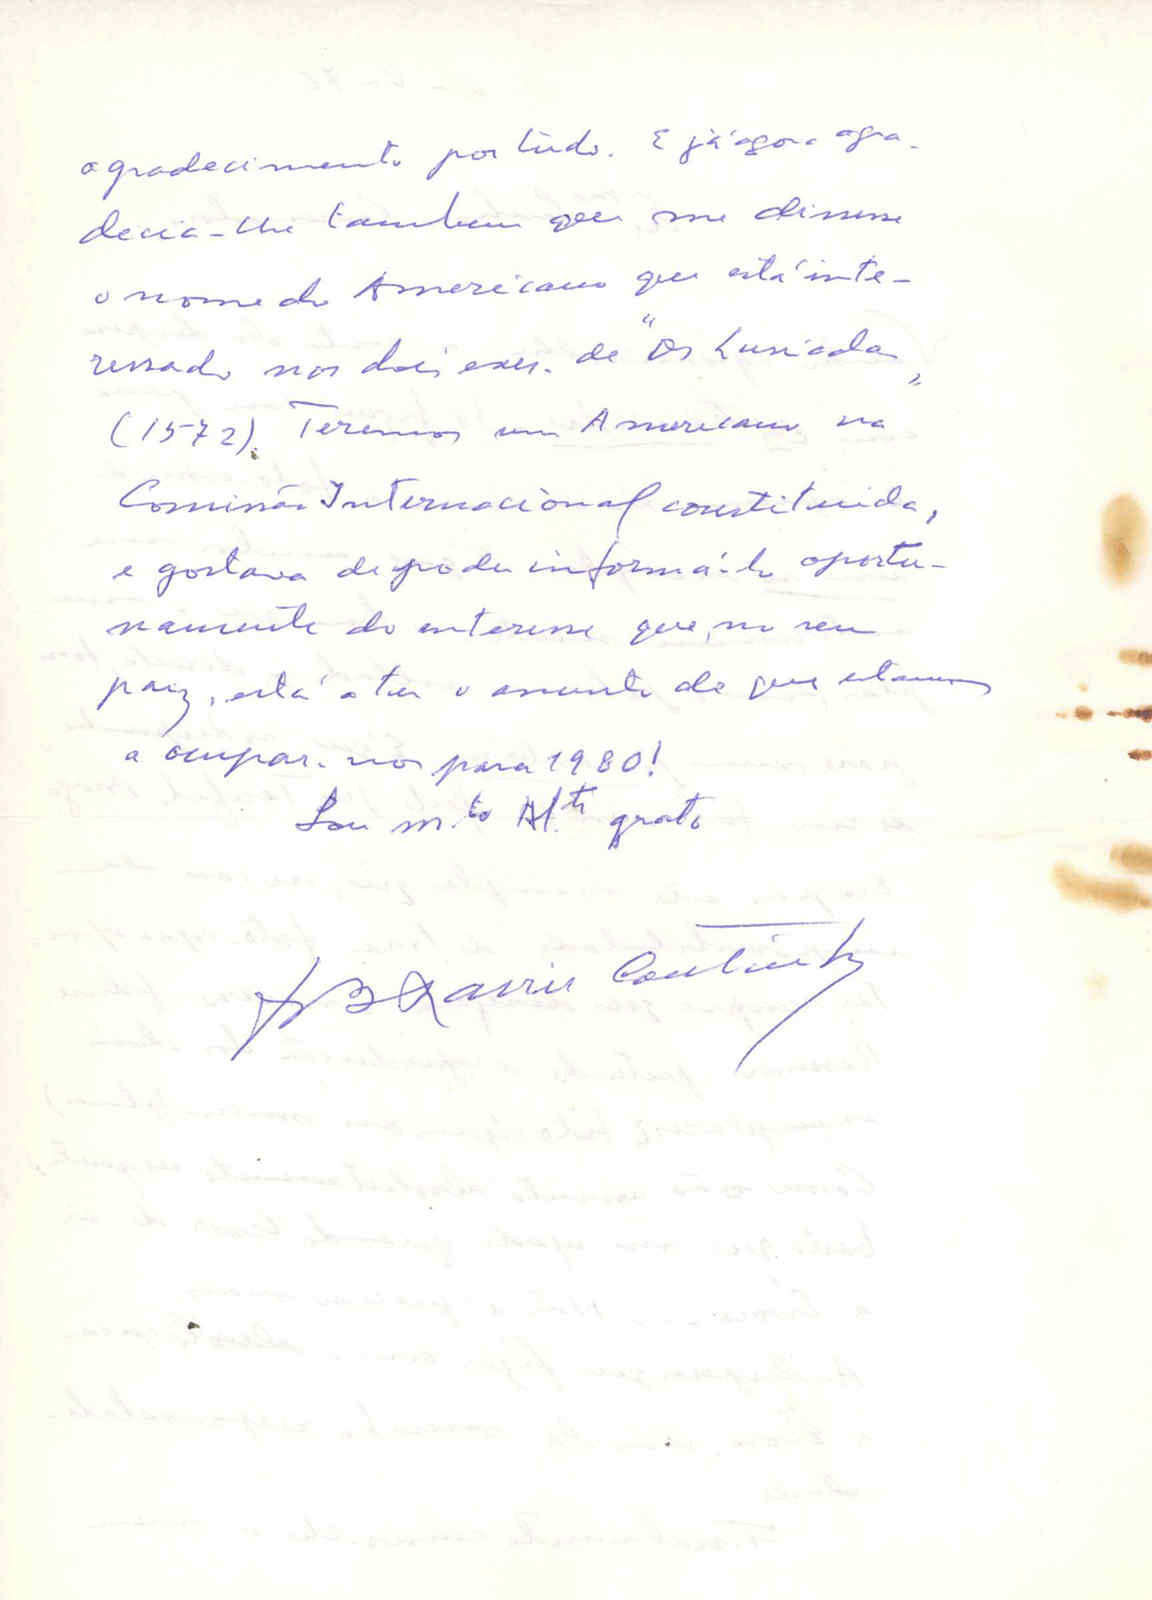 agradecimento por tudo. E já agora agra-
decia-lhe tambem que me dissesse
o nome do Americano que está inte-
ressado nos dois exes. de "Os Lusiadas"
(1572). Teremos um Americano na
Comissão Internacional constituida,
e gostava de poder informá-lo oportu-
namente do interesse que, no seu
paiz, está a ter o assunto de que estamos
a ocupar-nos para 1980!
Sou m.to At.te grato
B Xavier Coutinho